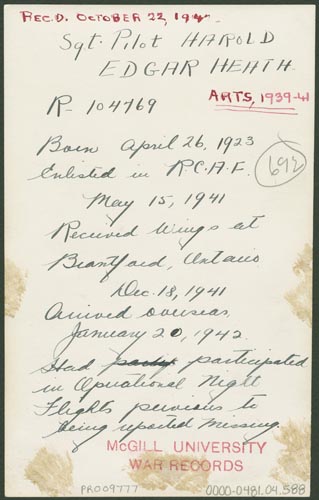 REC.D. OCTOBER 22, 194
Sgt. Pilot HAROLD
EDGAR HEATH
ARTS, 1939-41
R- 104769
Born April 26, 1923
Enlisted in R.C.A.F.
692
May 15, 1941
Received Wings at
Brantford, Ontario
Dec. 18, 1941
Arrived overseas
January 20, 1942
Had party participated
in Operational Night
Flights pervious to
being reported missing.
McGILL UNIVERSITY
WAR RECORDS
PR009777
0000-0481.04.588